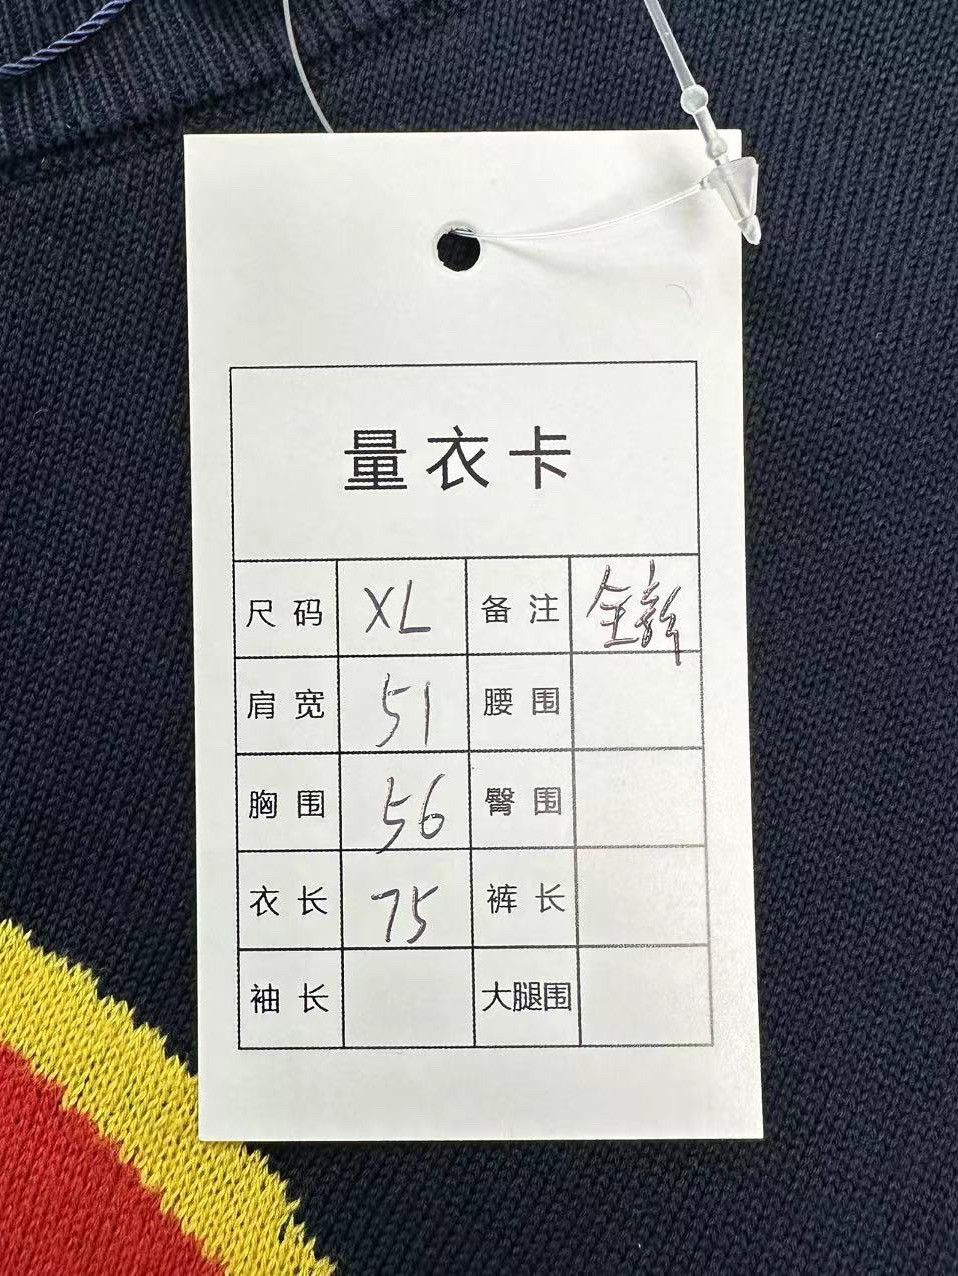 量衣卡
尺码 XL 备注 全新
肩宽 51 腰围
胸围 56 臀围
衣长 75 裤长
袖长 大腿围